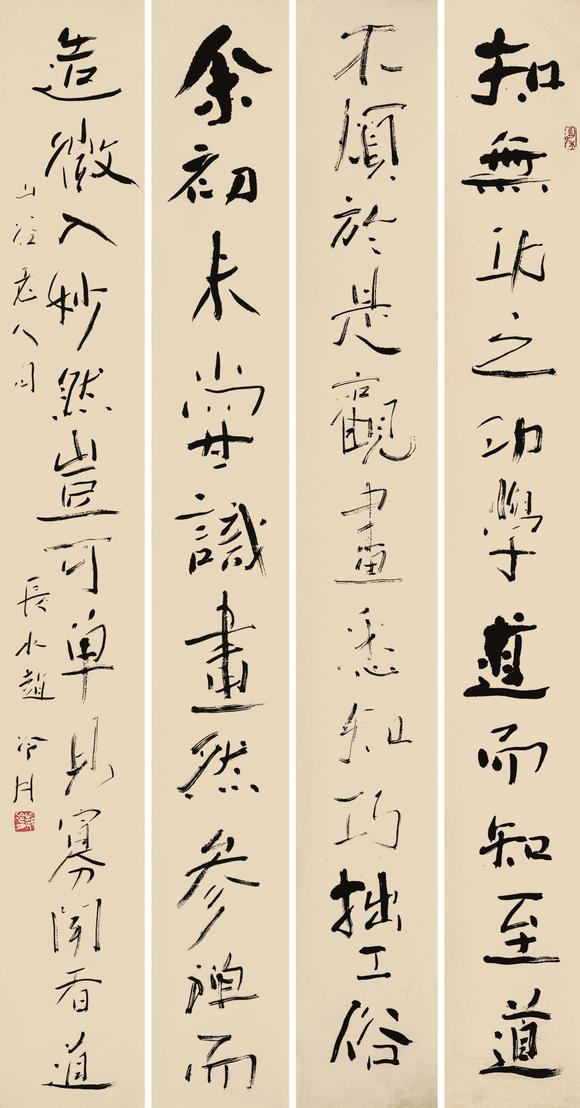 知無功之功學道而知至道
不煩於是觀畫悉知巧拙工俗
余初未甞識畫然參禪而
造微入妙然豈可單見寡聞者道
山谷老人句 長水趙冷月